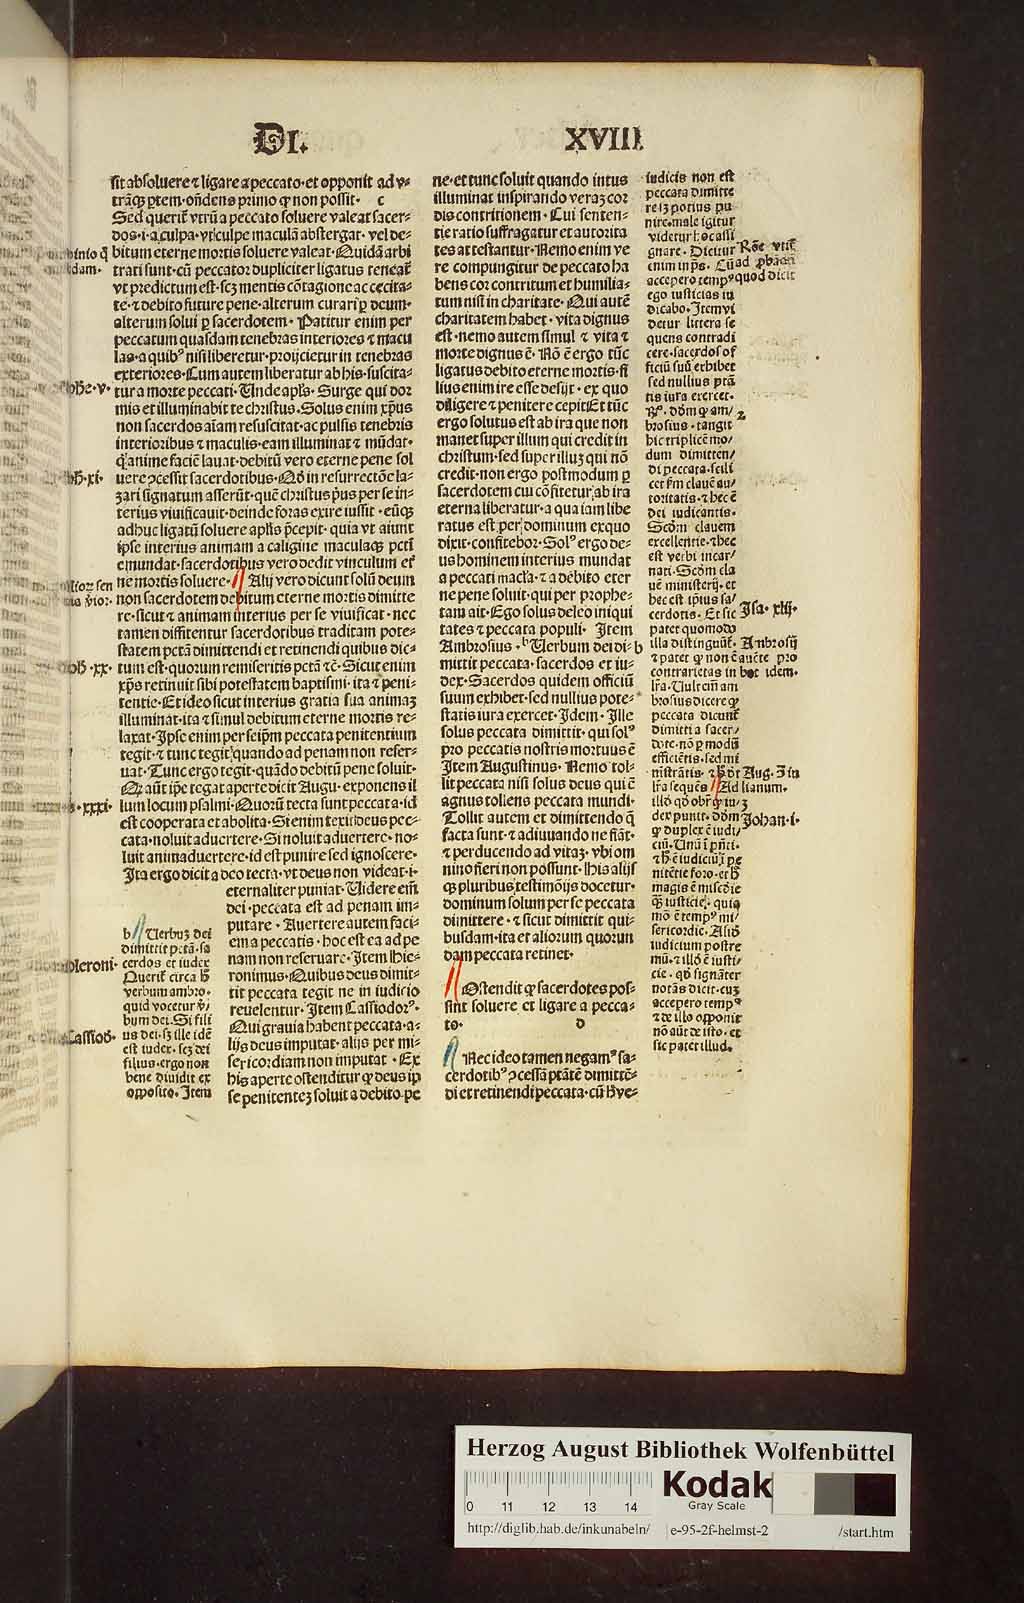 DI.
XVIII.
sit absoluere ⁊ ligare a peccato· et opponit ad v-
trāqꝫ ptem· oñdens primo ꝙ non possit· c
Sed queriť vtrū a peccato soluere valeat sacer-
dos· i· a culpa· vt culpe maculā abstergat· vel de-
bitum eterne mortis soluere valeat· Quidā arbi
trati sunt· cū peccator dupliciter ligatus teneať
vt predictum est· scꝫ mentis cōtagione ac cecita-
te· ⁊ debito future pene· alterum curari ꝑ deum·
alterum solui ꝑ sacerdotem· Patitur enim per
peccatum quasdam tenebras interiores ⁊ macu
las· a quibꝰ nisi liberetur· proijcietur in tenebras
exteriores· Cum autem liberatur ab his· suscita-
tur a morte peccati· Unde apľs· Surge qui dor
mis et illuminabit te christus· Solus enim xp̄us
non sacerdos aīam resuscitat· ac pulsis tenebris
interioribus ⁊ maculis· eam illuminat ⁊ mūdat·
ꝗ anime faciē lauat· debitū vero eterne pene sol
uere ꝯcessit sacerdotibus· Qď in resurrectōe la-
zari signatum asserūt· quē christus p̄us per se in-
terius viuificauit· deinde foras exire iussit· eūqꝫ
adhuc ligatū soluere apľis p̄cepit· quia vt aiunt
ipse interius animam a caligine maculaqꝫ pcti
emundat· sacerdotibus vero dedit vinculum eť
ne mortis soluere· Alij vero dicunt solū deum
non sacerdotem debitum eterne mortis dimitte
re· sicut ⁊ animam interius per se viuificat· nec
tamen diffitentur sacerdotibus traditam pote-
statem pctā dimittendi et retinendi quibus dic-
tum est· quorum remiseritis pctā ⁊c̄· Sicut enim
xp̄s retinuit sibi potestatem baptismi· ita ⁊ peni-
tentie· Et ideo sicut interius gratia sua animaꝫ
illuminat· ita ⁊ simul debitum eterne mortis re-
laxat· Ipse enim per seip̄m peccata penitentium
tegit· ⁊ tunc tegit· quando ad penam non reser-
uat· Tunc ergo tegit· quādo debitū pene soluit·
Qꝫ aūt ip̄e tegat aperte dicit Augu· exponens il
lum locum psalmi· Quorū tecta sunt peccata· id
est cooperata et abolita· Si enim texit deus pec-
cata· noluit aduertere· Si noluit aduertere· no-
luit animaduertere· id est punire sed ignoscere·
Ita ergo dicit a deo tecta· vt deus non videat· i·
eternaliter puniat· Uidere eīm
dei· peccata est ad penam im-
putare· Auertere autem faci-
em a peccatis· hoc est ea ad pe
nam non reseruare· Item Hie-
ronimus· Quibus deus dimit-
tit peccata tegit ne in iudicio
reuelentur· Item Cassiodorꝰ·
Qui grauia habent peccata· a-
lijs deus imputat· alijs per mi-
sericordiam non imputat· Ex
his aperte ostenditur ꝙ deus ip
se penitenteꝫ soluit a debito pe
b Uerbuꝫ dei
dimittit pctā· sa
cerdos et iudex
Queriť circa h̄
verbum ambro·
quid vocetur v̄/
bum dei· Si fili
us dei· sꝫ ille idē
est iudex· scꝫ dei
filius· ergo non
bene diuidit ex
opposito· Item
ne· et tunc soluit quando intus
illuminat inspirando veraꝫ cor
dis contritionem· Cui senten-
tie ratio suffragatur et autorita
tes attestantur· Nemo enim ve
re compungitur de peccato ha
bens cor contritum et humilia-
tum nisi in charitate· Qui autē
charitatem habet· vita dignus
est· nemo autem simul ⁊ vita ⁊
morte dignus ē· Nō ē ergo tūc
ligatus debito eterne mortis· fi
lius enim ire esse desijt· ex quo
diligere ⁊ penitere cepit· Et tūc
ergo solutus est ab ira que non
manet super illum qui credit in
christum· sed super illuꝫ qui nō
credit· non ergo postmodum ꝑ
sacerdotem cui cōfitetur· ab ira
eterna liberatur· a qua iam libe
ratus est per dominum ex quo
dixit· confitebor· Solꝰ ergo de-
us hominem interius mundat
a peccati macľa· ⁊ a debito eter
ne pene soluit· qui per prophe-
tam ait· Ego solus deleo iniqui
tates ⁊ peccata populi· Item
Ambrosius· b Uerbum dei di-
mittit peccata· sacerdos et iu-
dex· Sacerdos quidem officiū
suum exhibet· sed nullius pote-
statis iura exercet· Idem· Ille
solus peccata dimittit· qui solꝰ
pro peccatis nostris mortuus ē
Item Augustinus· Nemo tol-
lit peccata nisi solus deus qui ē
agnus tollens peccata mundi·
Tollit autem et dimittendo ꝗ
facta sunt· ⁊ adiuuando ne fiāt·
⁊ perducendo ad vitaꝫ· vbi om
nino fieri non possunt· His alijs
qꝫ pluribus testimōijs docetur·
dominum solum per se peccata
dimittere· ⁊ sicut dimittit qui-
busdam· ita et aliorum quorun
dam peccata retinet·
Ostendit ꝙ sacerdotes pos-
sint soluere et ligare a pecca-
to· d
Nec ideo tamen negamꝰ sa-
cerdotibꝰ ꝯcessā ptātē dimittē-
di et retinendi peccata· cū h̄ ve-
iudicis non est
peccata dimitte
re sꝫ potius pu
nire· male igitur
videtur hoc assi
gnare· Dicitur
enim in ps· Cū
accepero tempꝰ
ego iusticias iu
dicabo· Item vi
detur littera se
quens contradi
cere· sacerdos of
ficiū suū exhibet
sed nullius ptā
tis iura exercet·
Rꝰ· dōm ꝙ am/
brosius· tangit
hic triplicē mo/
dum dimitten/
di peccata· scili
cet fm clauē au/
toritatis· ⁊ hec ē
dei iudicantis·
Scḋm clauem
excellentie· ⁊ hec
est verbi incar/
nati· Scḋm cla
uē ministerij· et
hec est ipsius sa/
cerdotis· Et sic
patet quomodo
illa distinguūť·
⁊ patet ꝙ non ē
contrarietas in
lr̄a· Uult eīm am
brosius dicere ꝙ
peccata dicunť
dimitti a sacer/
dote· nō ꝑ modū
efficiētis· sed mi
nistrātis· ⁊ h̄ dr̄
lr̄a sequēs Ad
illō· qď obr̄ ꝙ iu/
dex punit· dōm
ꝙ duplex ē iudi/
ciū· Unū i p̄nti·
⁊ h̄ ē iudiciuꝫ pe
nitētie foro· et h̄
magis ē miscd̄ie
qꝫ iusticie· quia
mō ē tempꝰ mi/
sericordie· Aliō
iudicium postre
mū· ⁊ illō ē iusti/
cie· qď signāter
notās dicit· cuꝫ
accepero tempꝰ
⁊ de illo opponit
nō aūt de isto· et
sic patet illud·
Rōe vtiť
ad ꝓbādū
quod dicit
2
Isa· xliij·
Ambrosij
aucte pro
bat idem·
Aug· 3 in
lianum·
3
Johan· i·
b
Hieroni·
Cassiod·
Herzog August Bibliothek Wolfenbüttel
0 11 12 13 14
Kodak
Gray Scale
http://diglib.hab.de/inkunabeln/ e-95-2f-helmst-2 /start.htm